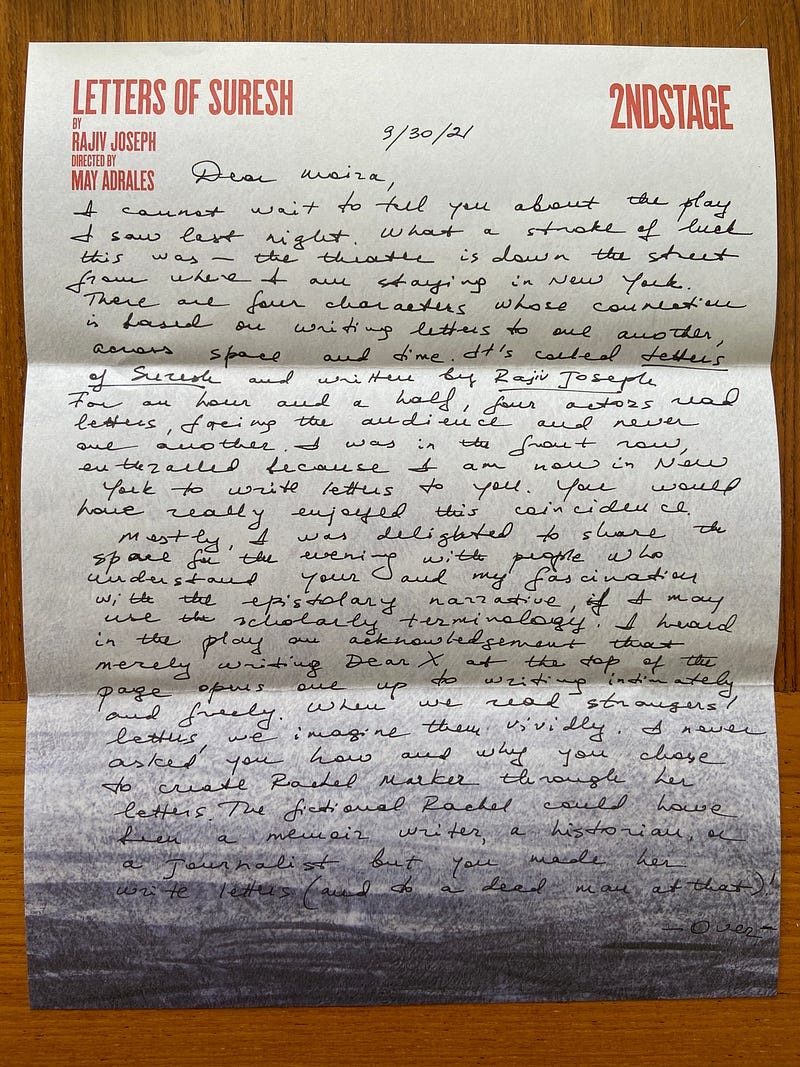 LETTERS OF SURESH
BY
RAJIV JOSEPH
DIRECTED BY
MAY ADRALES
2NDSTAGE
9/30/21
Dear Moira,
I cannot wait to tell you about the play
I saw last night. What a stroke of luck
this was — the theater is down the street
from where I am staying in New York.
There are four characters whose connection
is based on writing letters to one another,
across space and time. It's called Letters
of Suresh and written by Rajiv Joseph
For an hour and a half, four actors read
letters, facing the audience and never
one another. I was in the front row,
enthralled because I am now in New
York to write letters to you. You would
have really enjoyed this coincidence.
Mostly, I was delighted to share the
space for the evening with people who
understand your and my fascination
with the epistolary narrative, if I may
use the scholarly terminology. I heard
in the play an acknowledgement that
merely writing Dear X, at the top of the
page opens one up to writing intimately
and freely. When we read strangers'
letters, we imagine them vividly. I never
asked you how and why you chose
to create Rachel Marker through her
letters. The fictional Rachel could have
been a memoir writer, a historian, or
a journalist but you made her
write letters (and to a dead man at that)!
— Over —